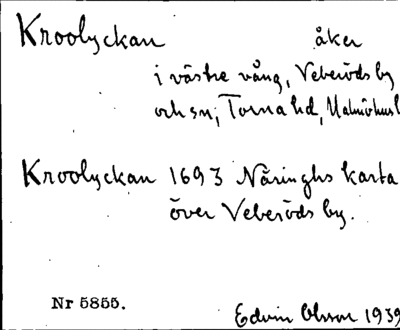 Kroolyckan åker
i västre vång, Veberöds by
och sn, Torna hd, Malmöhus l
Kroolyckan 1693 Nåringhs karta
över Veberöds by.
Nr 5855.
Edvin Olsson 1939